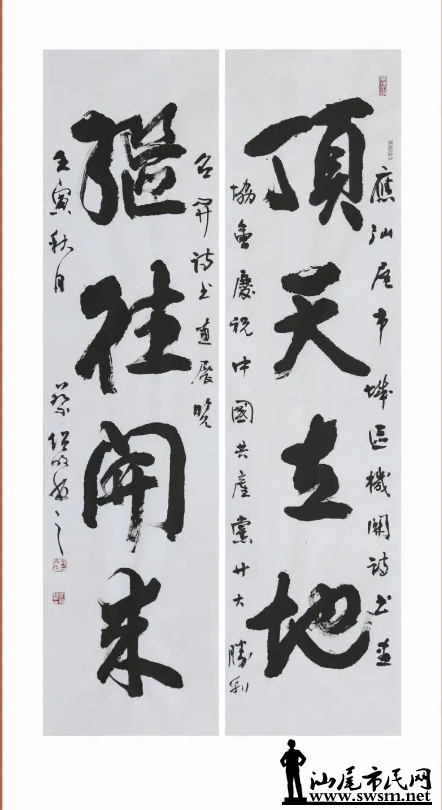 應汕尾市城區機關詩书画
頂天立地
協會慶祝中國共產黨廿大勝利
召開詩书画展覽
繼往開来
壬寅秋月 蔡
汕尾市民网
www.swsm.net